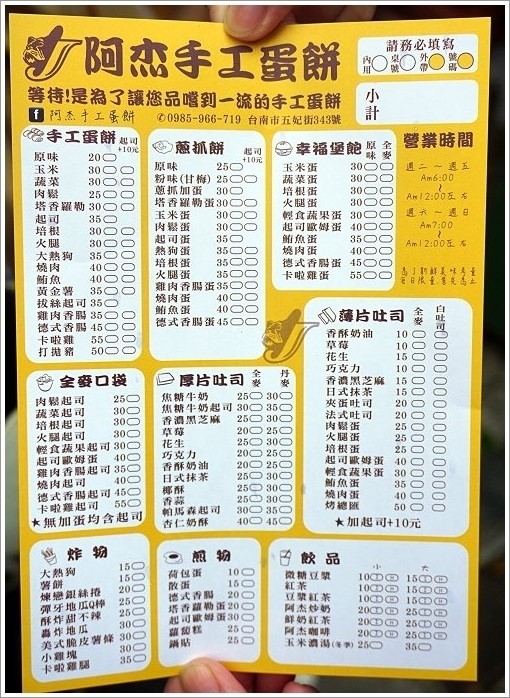 阿杰手工蛋餅
等待!是為了讓您品嚐到一流的手工蛋餅
f 阿杰手工蛋餅 ✆0985-966-719 台南市五妃街343號
請務必填寫
內用 桌號 外帶 號碼
小計
營業時間
週二～週五
Am6:00
~
Am12:00左右
週六～週日
Am7:00
~
Am12:00左右
手工蛋餅 起司+10元
原味 20
玉米 30
蔬菜 30
肉鬆 25
塔香蘿勒 30
起司 35
培根 30
火腿 30
大熱狗 35
燒肉 40
鮪魚 40
黃金薯 35
拔絲起司 35
雞肉香腸 35
德式香腸 45
卡啦雞 55
打拋豬 50
蔥抓餅 起司+10元
原味 25
粉味(甘梅) 25
蔥抓加蛋 30
塔香蘿勒蛋 30
玉米蛋 30
肉鬆蛋 30
起司蛋 35
熱狗蛋 35
培根蛋 35
火腿蛋 35
燒肉蛋 40
鮪魚蛋 40
德式香腸蛋 45
幸福堡飽 原味 全麥
玉米蛋 30
蔬菜蛋 30
培根蛋 30
火腿蛋 30
輕食蔬果蛋 30
起司歐姆蛋 40
鮪魚蛋 35
燒肉蛋 40
德式香腸蛋 45
卡啦雞蛋 55
薄片吐司 全麥 白吐司
香酥奶油 10
草莓 10
花生 15
巧克力 10
香濃黑芝麻 15
日式抹茶 15
夾蛋吐司 20
法式吐司 20
肉鬆蛋 25
火腿蛋 25
培根蛋 25
起司歐姆蛋 40
輕食蔬果蛋 30
鮪魚蛋 35
燒肉蛋 40
烤總匯 50
★加起司+10元
全麥口袋
肉鬆起司 25
蔬菜起司 30
培根起司 30
火腿起司 30
輕食蔬果起司 30
起司歐姆蛋 40
雞肉香腸起司 35
燒肉起司 40
德式香腸起司 45
卡啦雞起司 55
★無加蛋均含起司
厚片吐司 全麥 丹麥
焦糖牛奶 25 30
焦糖牛奶起司 30 35
香濃黑芝麻 25 30
草莓 20 25
花生 25 30
巧克力 20 25
香酥奶油 20 25
日式抹茶 25 30
椰酥 25 30
香蒜 25 30
帕馬森起司 30 35
杏仁奶酥 40 45
炸物
大熱狗 15
薯餅 15
煉戀銀絲捲 20
彈牙地瓜Q棒 25
酥炸甜不辣 25
轟炸地瓜 30
美式脆皮薯條 30
小雞塊 30
卡啦雞腿 35
煎物
荷包蛋 10
散蛋 15
德式香腸 20
塔香蘿勒蛋 20
起司歐姆蛋 30
蘿蔔糕 25
鍋貼 25
飲品
小 大
微糖豆漿 10 15
紅茶 10 15
豆漿紅茶 10 15
阿杰炒奶 20 25
鮮奶紅茶 20 25
阿杰咖啡 20 25
玉米濃湯(冬季) 25 35